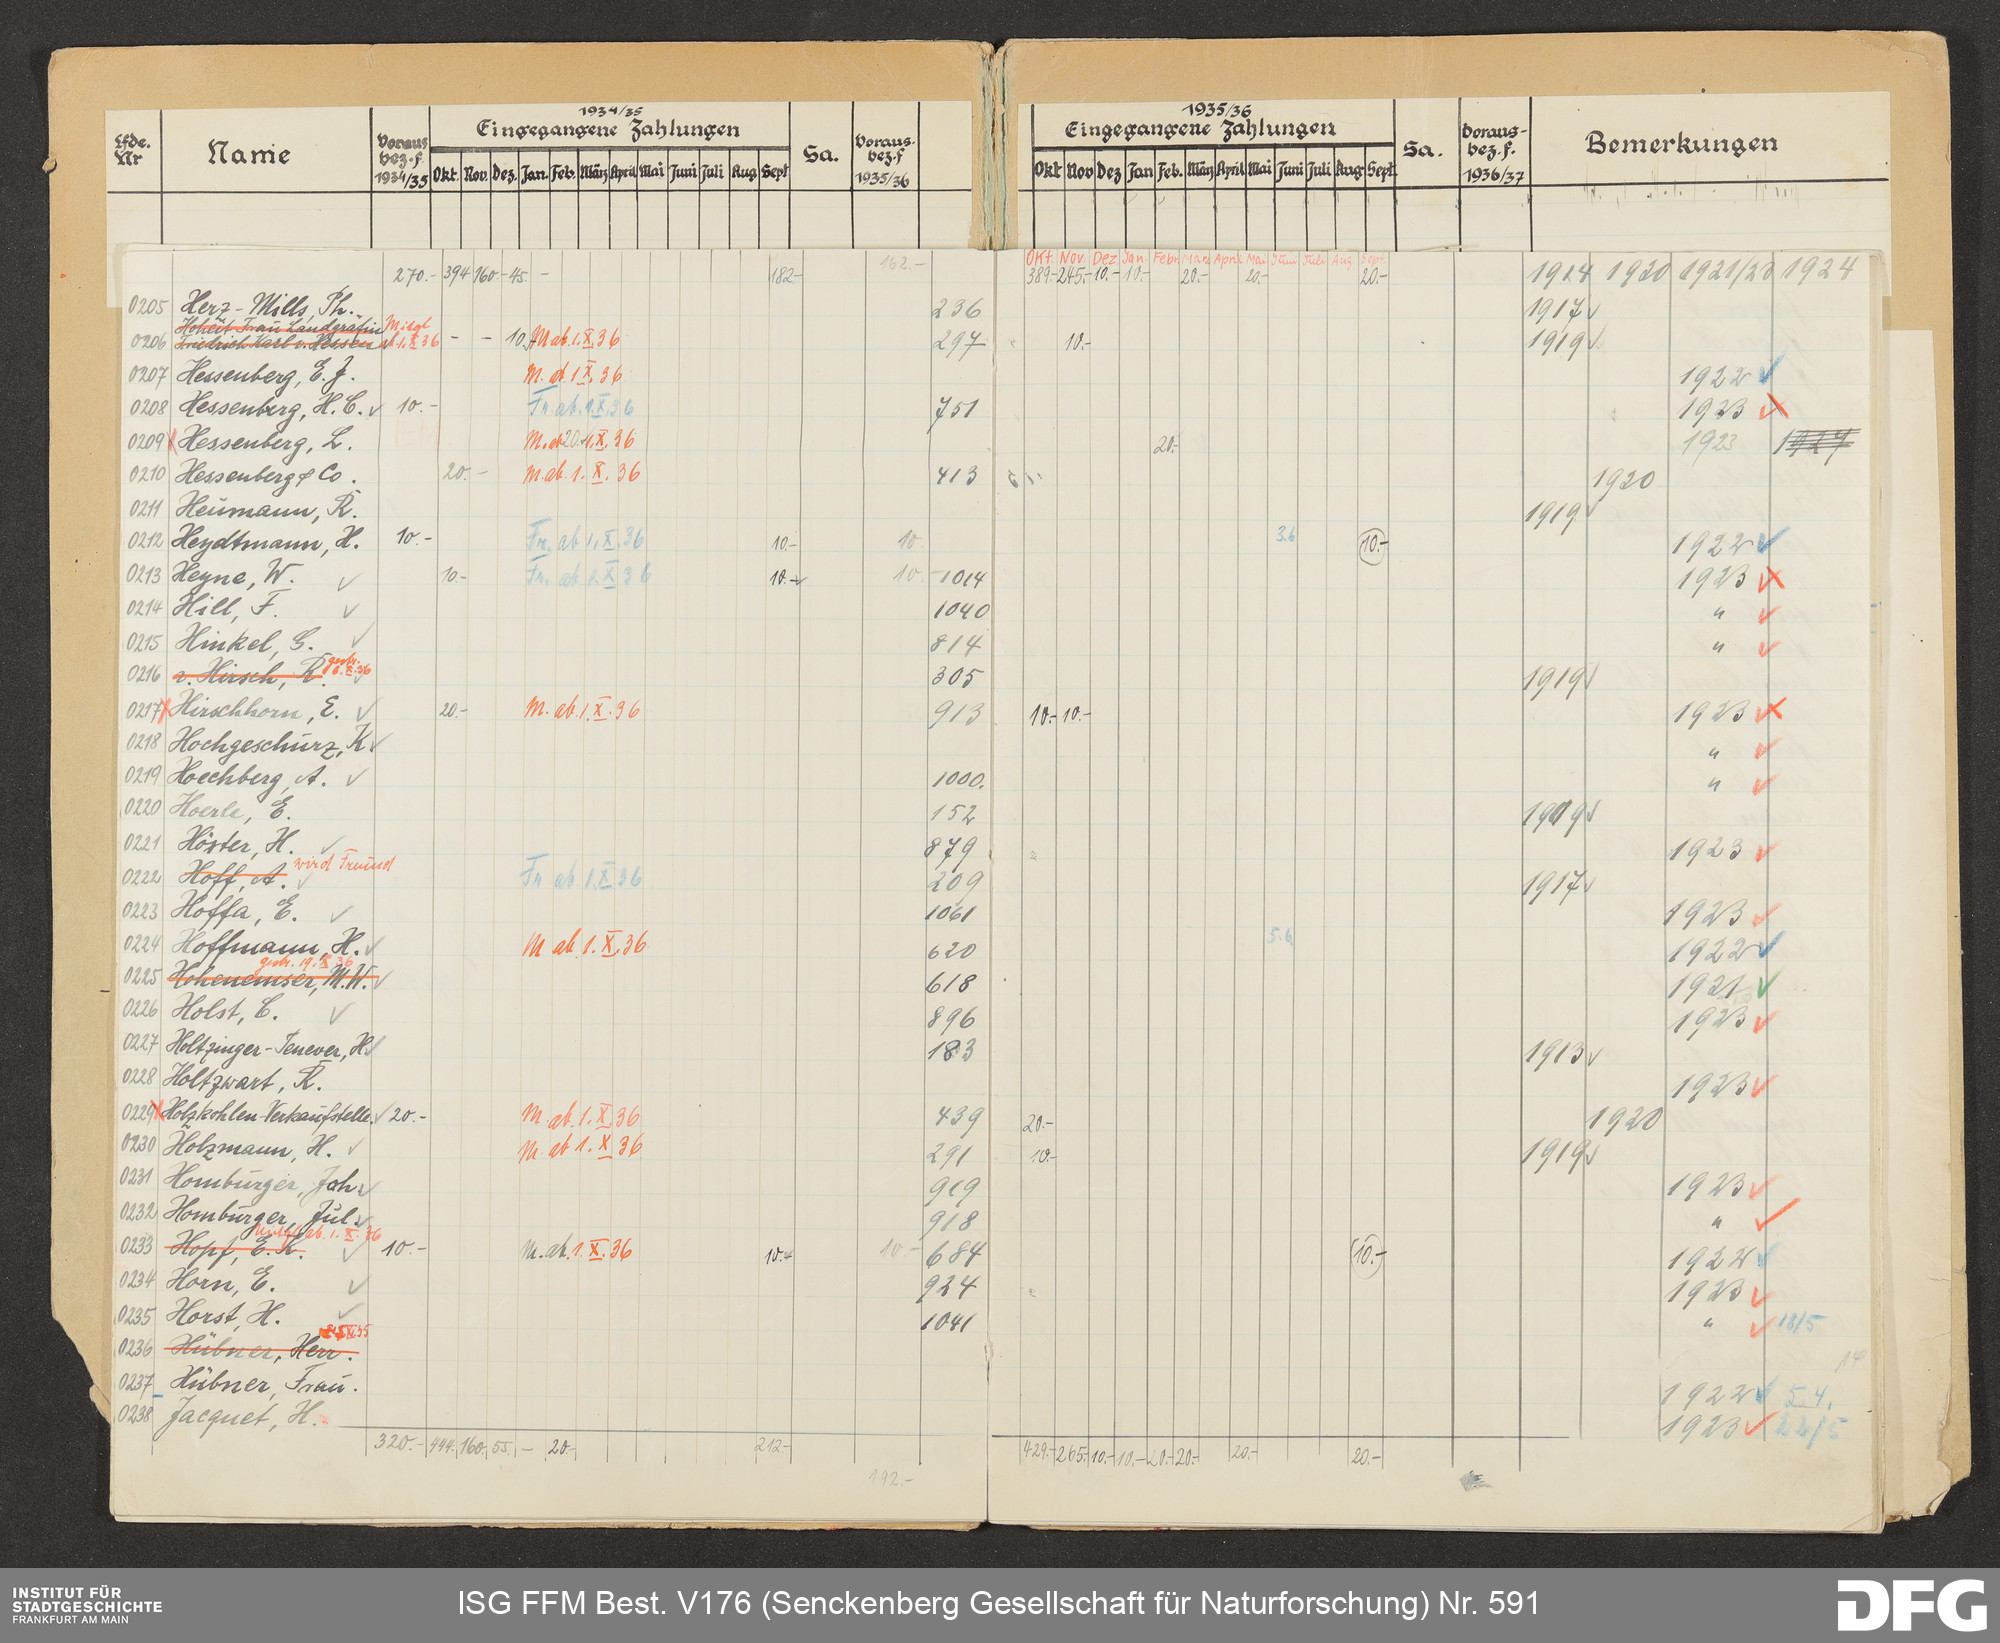 Lfde. Nr Name Voraus bez. f. 1934/35 1934/35 Eingegangene Zahlungen Sa. Voraus- bez. f 1935/36 1935/36 Eingegangene Zahlungen Sa. Voraus- bez. f. 1936/37 Bemerkungen
Okt. Nov. Dez. Jan. Feb. März April Mai Juni Juli Aug Sept Okt Nov Dez Jan Feb. März April Mai Juni Juli Aug Sept.
Okt. Nov. Dez Jan. Febr. März April Mai Juni Juli Aug Sept.
270.- 394 160.- 45. - 182- 162.- 389.- 245.- 10.- 10.- 20.- 20.- 20.- 1914 1920 1921/23 1924
0205 Herz-Mills, Ph. 236 1917
Hoheit Frau Landgräfin Mitgl
0206 Friedrich Karl v. Hessen ab 1.X 36 - - 10. M ab. 1. X. 36 297 10.- 1919
0207 Hessenberg, E. J. M. ab 1. X. 36 1922
0208 Hessenberg, H. C. 10.- Fr. ab. 1. X. 36 751 1923
0209 Hessenberg, L. M. ab 20.- 1. X. 36 20.- 1923 1924
0210 Hessenberg & Co. 20.- M. ab. 1. X. 36 413 1920
0211 Heümann, R. 1919
0212 Heydtmann, H. 10.- Fr. ab 1. X. 36 10.- 10 3.6 10.- 1922
0213 Heyne, W. 10- Fr. ab 1. X 36 10.- 10.- 1014 1923
0214 Hill, F. 1040 "
0215 Hinkel, G. 814 "
0216 v. Hirsch, R. gestr. 305 1919
0217 Hirschhorn, E. 20.- M. ab. 1. X. 36 913 10.- 10.- 1923
0218 Hochgeschürz, K "
0219 Hoechberg, A. 1000. "
0220 Hoerle, E. 152 1919
0221 Höster, H. 879 1923
0222 Hoff, A. wird Freund Fr ab. 1. X 36 209 1917
0223 Hoffa, E. 1061 1923
0224 Hoffmann, H. M ab. 1. X. 36 620 5.6 1922
0225 Hohenemser, M. W. gestr. 19. X 36 618 1921
0226 Holst, C. 896 1923
0227 Holtzinger-Tenever, H. 183 1913
0228 Holtzwart, R. 1923
0229 Holzkohlen-Verkaufstelle 20.- M. ab. 1. X. 36 439 20.- 1920
0230 Holzmann, H. M. ab 1. X 36 291 10.- 1919
0231 Homburger, Joh. 919 1923
0232 Homburger, Jül. 918 "
0233 Hopf, E. K. Mitgl. ab. 1. X. 36 10.- M. ab. 1. X. 36 10.- 10.- 684 10.- 1922
0234 Horn, E. 924 1923
0235 Horst, H. 1041 " 18/5
0236 Hübner, Herr.
0237 Hübner, Fraü. 1922 5.4.
0238 Jacquet, H. 1923 22/5
320.- 444. 160. 55. - 20.- 212.- 429.- 265.- 10.- 10.- 20.- 20.- 20.- 20.-
192.-
INSTITUT FÜR
STADTGESCHICHTE
FRANKFURT AM MAIN
ISG FFM Best. V176 (Senckenberg Gesellschaft für Naturforschung) Nr. 591
DFG